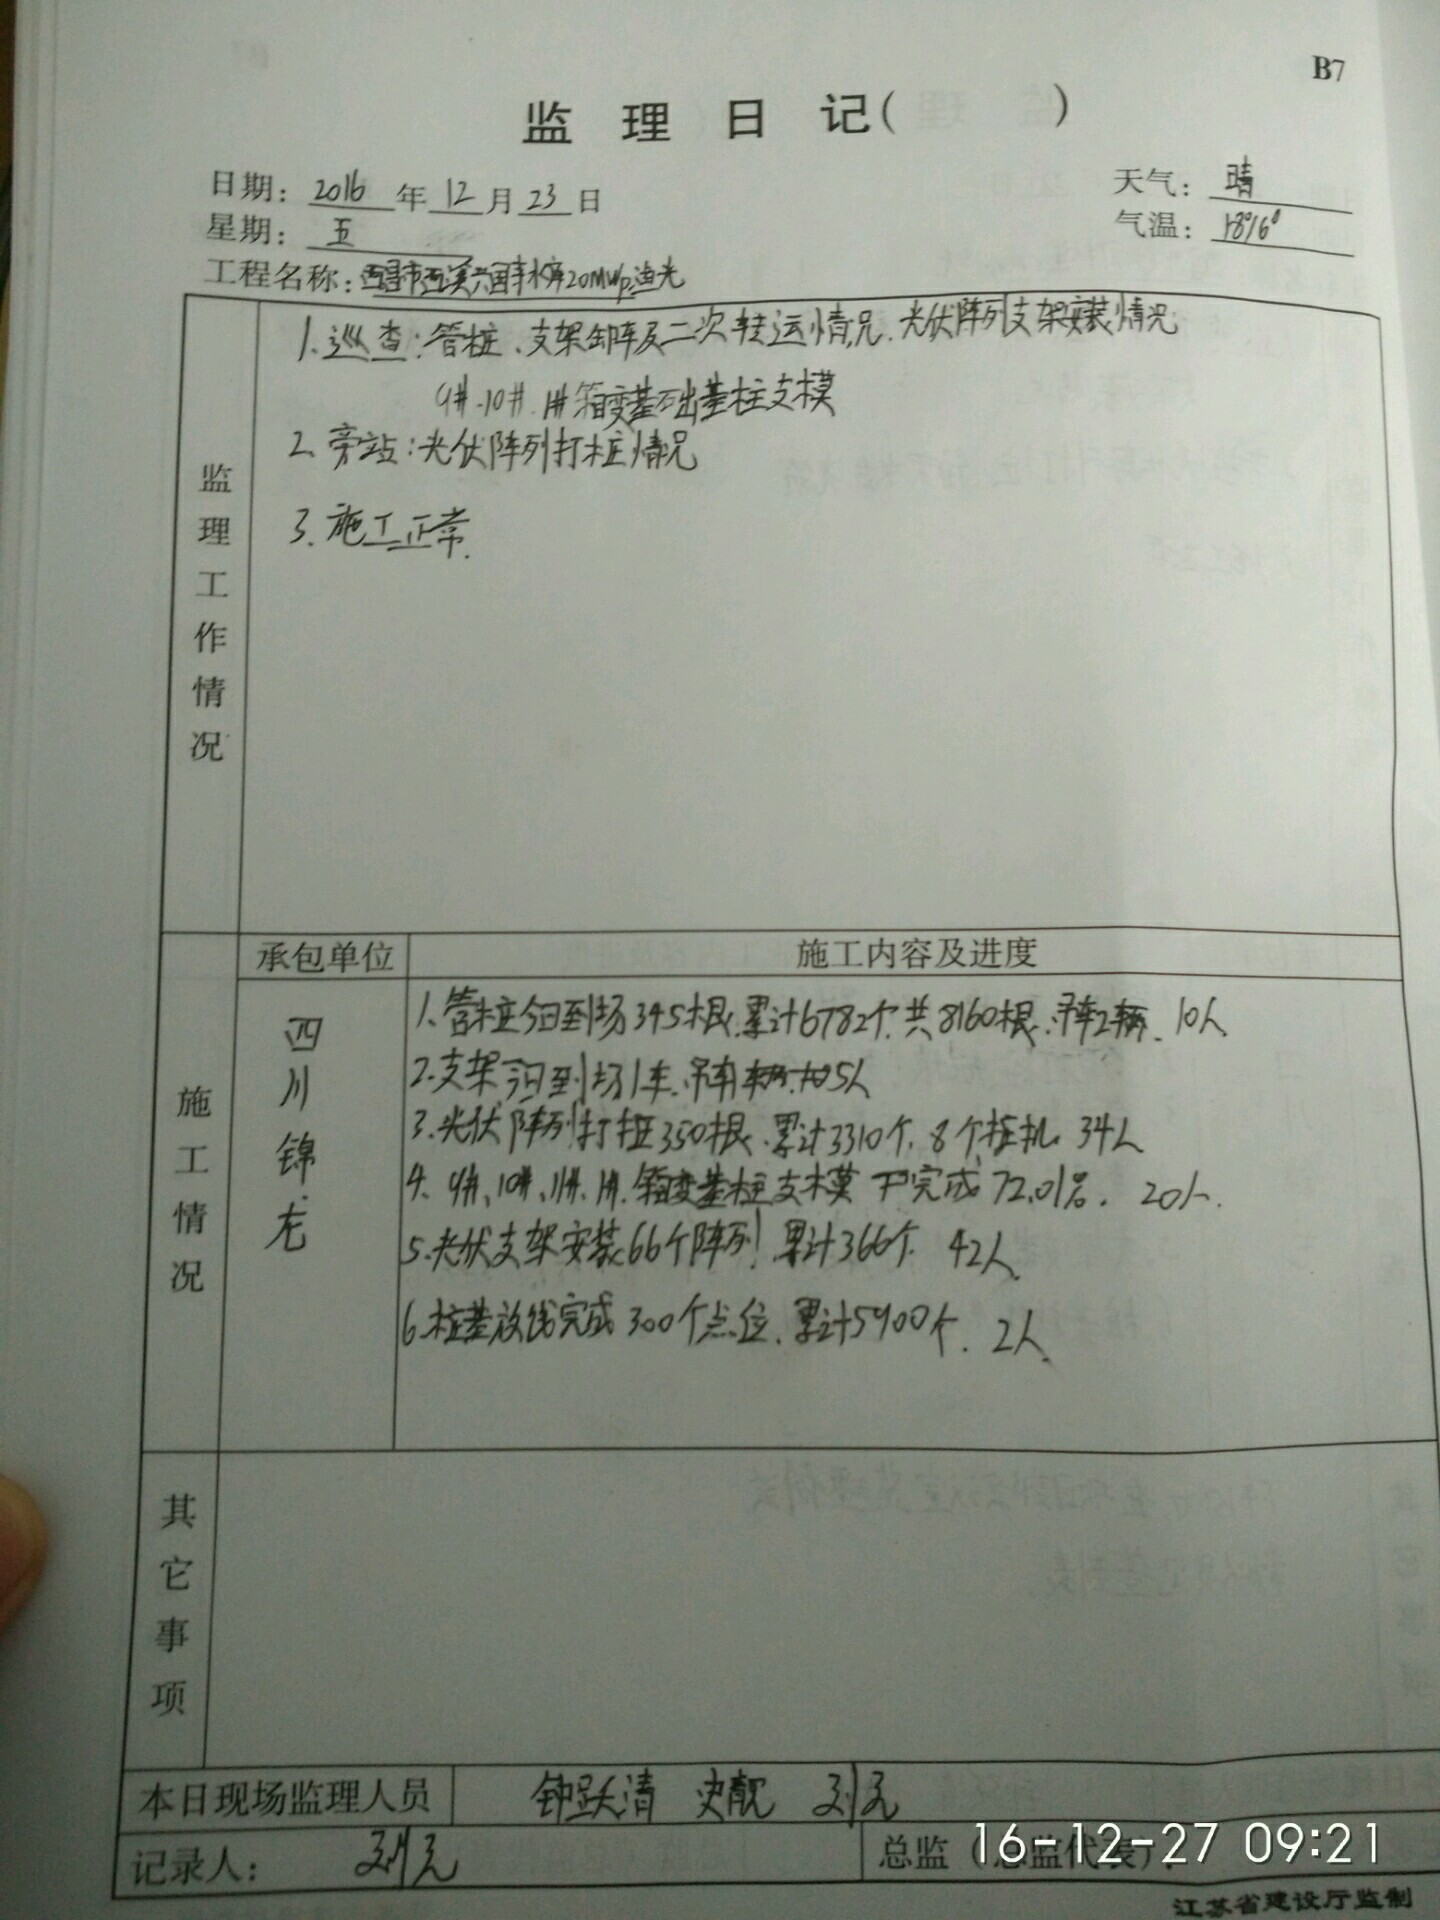 B7
监 理 日 记( )
日期: 2016 年 12 月 23 日
天气: 晴
星期: 五
气温:
工程名称: 西昌市西溪 20MWp渔光
监理工作情况
1. 巡查: 管桩、支架卸车及二次转运情况. 光伏阵列支架安装情况
9#. 10#. 1#箱变基础基柱支模
2. 旁站: 光伏阵列打桩情况
3. 施工正常.
承包单位
施工内容及进度
施工情况
四川锦龙
1. 管桩今日到场345根. 累计6782个. 共8160根. 吊车2辆. 10人.
2. 支架今日到场1车. 吊车 5人
3. 光伏阵列打桩350根. 累计3310个. 8个桩机. 34人
4. 9#、10#、1#. 箱变基柱支模 完成72.01%. 20人.
5. 光伏支架安装66个阵列. 累计366个. 42人.
6. 桩基放线完成300个点位. 累计5900个. 2人.
其它事项
本日现场监理人员 钟跃清 史靓 刘元
记录人: 刘元
总监(总监代表):
16-12-27 09:21
江苏省建设厅监制